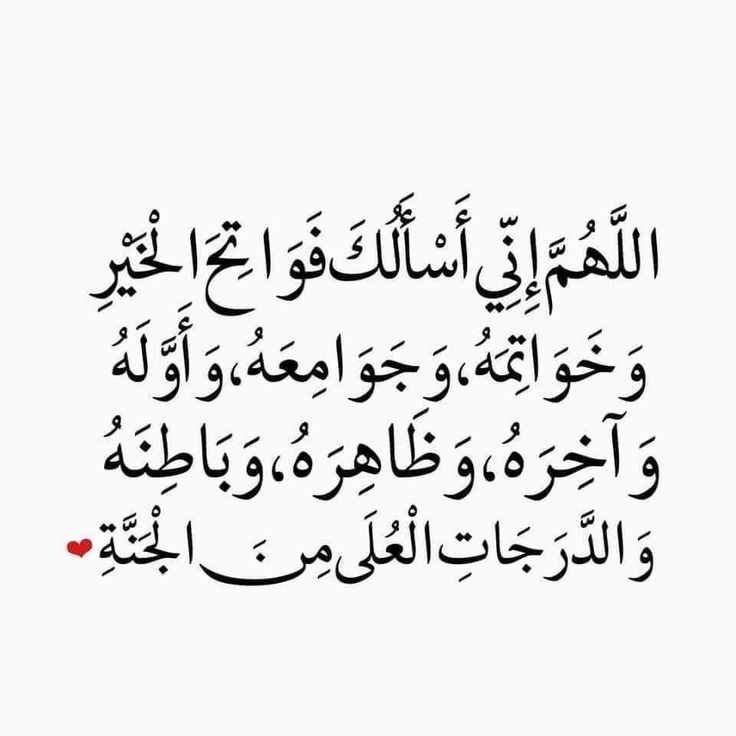 اللَّهُمَّ إِنِّي أَسْأَلُكَ فَوَاتِحَ الْخَيْرِ
وَخَوَاتِمَهُ، وَجَوَامِعَهُ، وَأَوَّلَهُ
وَآخِرَهُ، وَظَاهِرَهُ، وَبَاطِنَهُ
وَالدَّرَجَاتِ الْعُلَى مِنَ الْجَنَّةِ